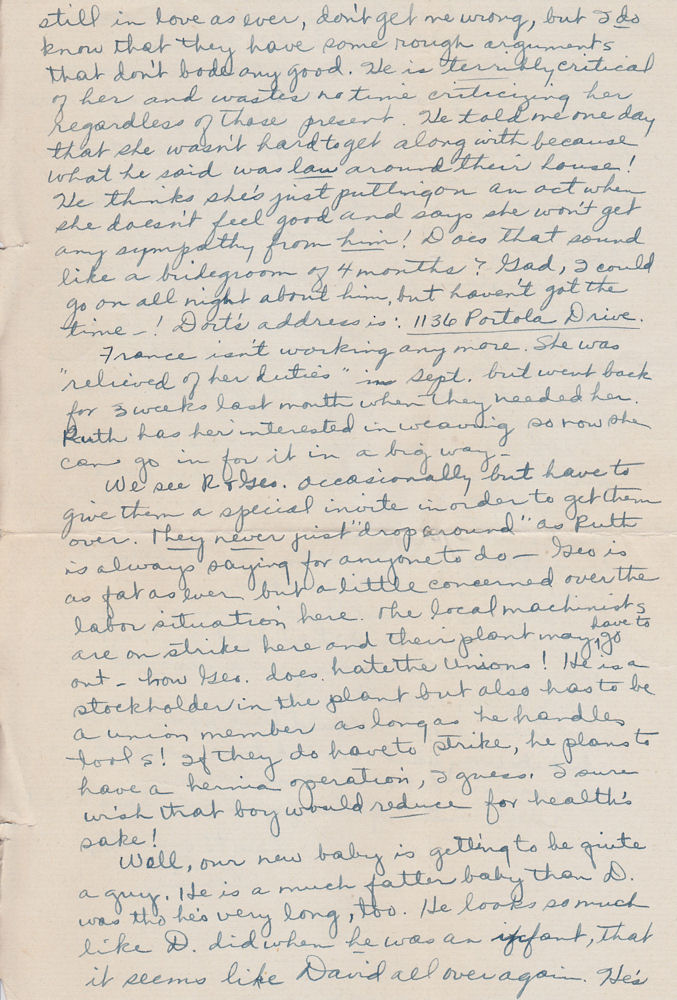 still in love as ever, don't get me wrong, but I do
know that they have some rough arguments
that don't bode any good. He is terribly critical
of her and wastes no time criticizing her
regardless of those present. He told me one day
that she wasn't hard to get along with because
what he said was law around their house!
He thinks she's just putting on an act when
she doesn't feel good and says she won't get
any sympathy from him! Does that sound
like a bridegroom of 4 months? Gad, I could
go on all night about him, but haven't got the
time -! Dort's address is: 1136 Portola Drive.
France isn't working any more. She was
"relieved of her duties" in Sept. but went back
for 3 weeks last month when they needed her.
Ruth has her interested in weaving so now she
can go in for it in a big way -
We see R & Geo. occasionally but have to
give them a special invite in order to get them
over. They never just "drop around" as Ruth
is always saying for anyone to do - Geo is
as fat as ever but a little concerned over the
labor situation here. The local machinists
are on strike here and their plant may have to go
out - how Geo. does hate the Unions! He is a
stockholder in the plant but also has to be
a union member as long as he handles
tools! If they do have to strike, he plans to
have a hernia operation, I guess. I sure
wish that boy would reduce for health's
sake!
Well, our new baby is getting to be quite
a guy. He is a much fatter baby than D.
was tho he's very long, too. He looks so much
like D. did when he was an infant, that
it seems like David all over again. He's